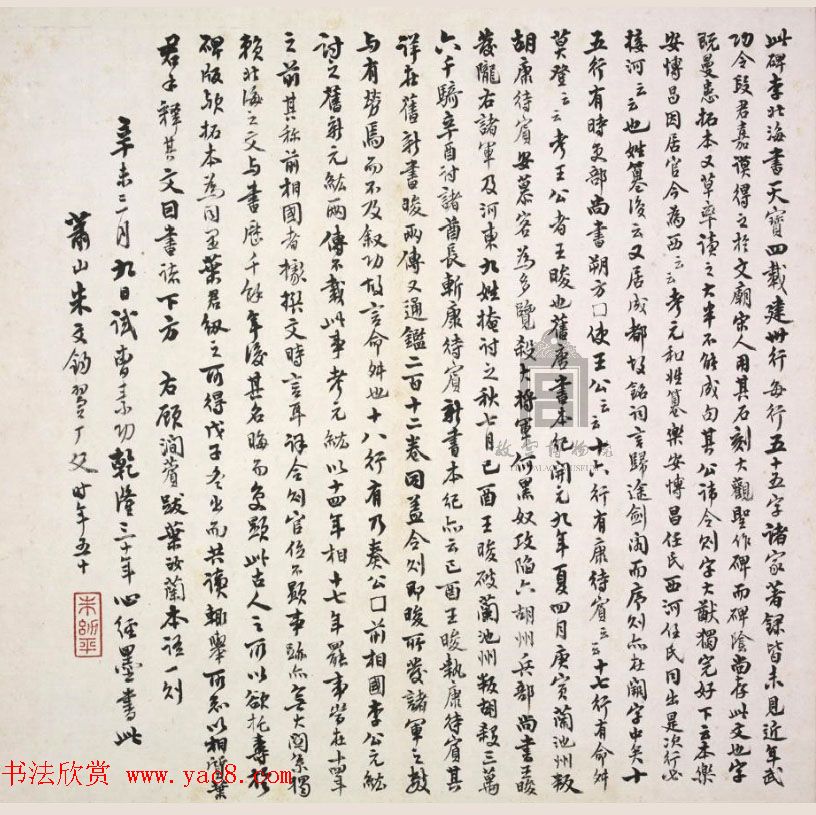 此碑李北海書天寶四載建卅行每行五十五字諸家著錄皆未見近年武
功令段君嘉謨得之於文廟宋人用其石刻大觀聖作碑而碑陰尚存此文也字
既曼患拓本又草率讀之大半不能成句其公諱令則字大猷獨完好下云本樂
安博昌因居官令為西云云考元和姓纂樂安博昌任氏西河任氏同出是次行必
接河云云也姓纂後云又居成都故銘詞言歸途劍閣而序則亦在闕字中矣十
五行有時吏部尚書朔方口使王公云云十六行有康待賓云云十七行有命舛
莫登云云考王公者王晙也舊唐書本紀開元九年夏四月庚寅蘭池州叛
胡康待賓安慕容為多覽殺大將軍何黑奴攻陷六胡州兵部尚書王晙
發隴右諸軍及河東九姓掩討之秋七月己酉王晙破蘭池州叛胡殺三萬
六千騎辛酉討諸酋長斬康待賓新書本紀亦云己酉王晙執康待賓其
詳在舊新書晙兩傳又通鑑二百十二卷因蓋令則即晙所發諸軍之數
与有勞焉而不及敘功故言命舛也十八行有乃奏公口前相國李公元紘
討之舊新元紘兩傳不載此事考元紘以十四年相十七年罷事當在十四年
之前其稱前相國者據撰文時言耳詳令則官位不顯事跡亦無大關係獨
賴北海之文与書歷千餘年後其名晦而復顯此古人之所以欲托壽於
碑版歟拓本為同里葉君紉之所得戊子冬出而共讀輒舉所知以相證葉
君手釋其文因書諸下方 右顧澗薲跋葉汝蘭本語一則
辛未二月九日試曹素功乾隆三十年心經墨書此
蕭山朱文鈞翼厂父時年五十
朱幼平
故宮博物院
THE PALACE MUSEUM
书法欣赏 www.yac8.com